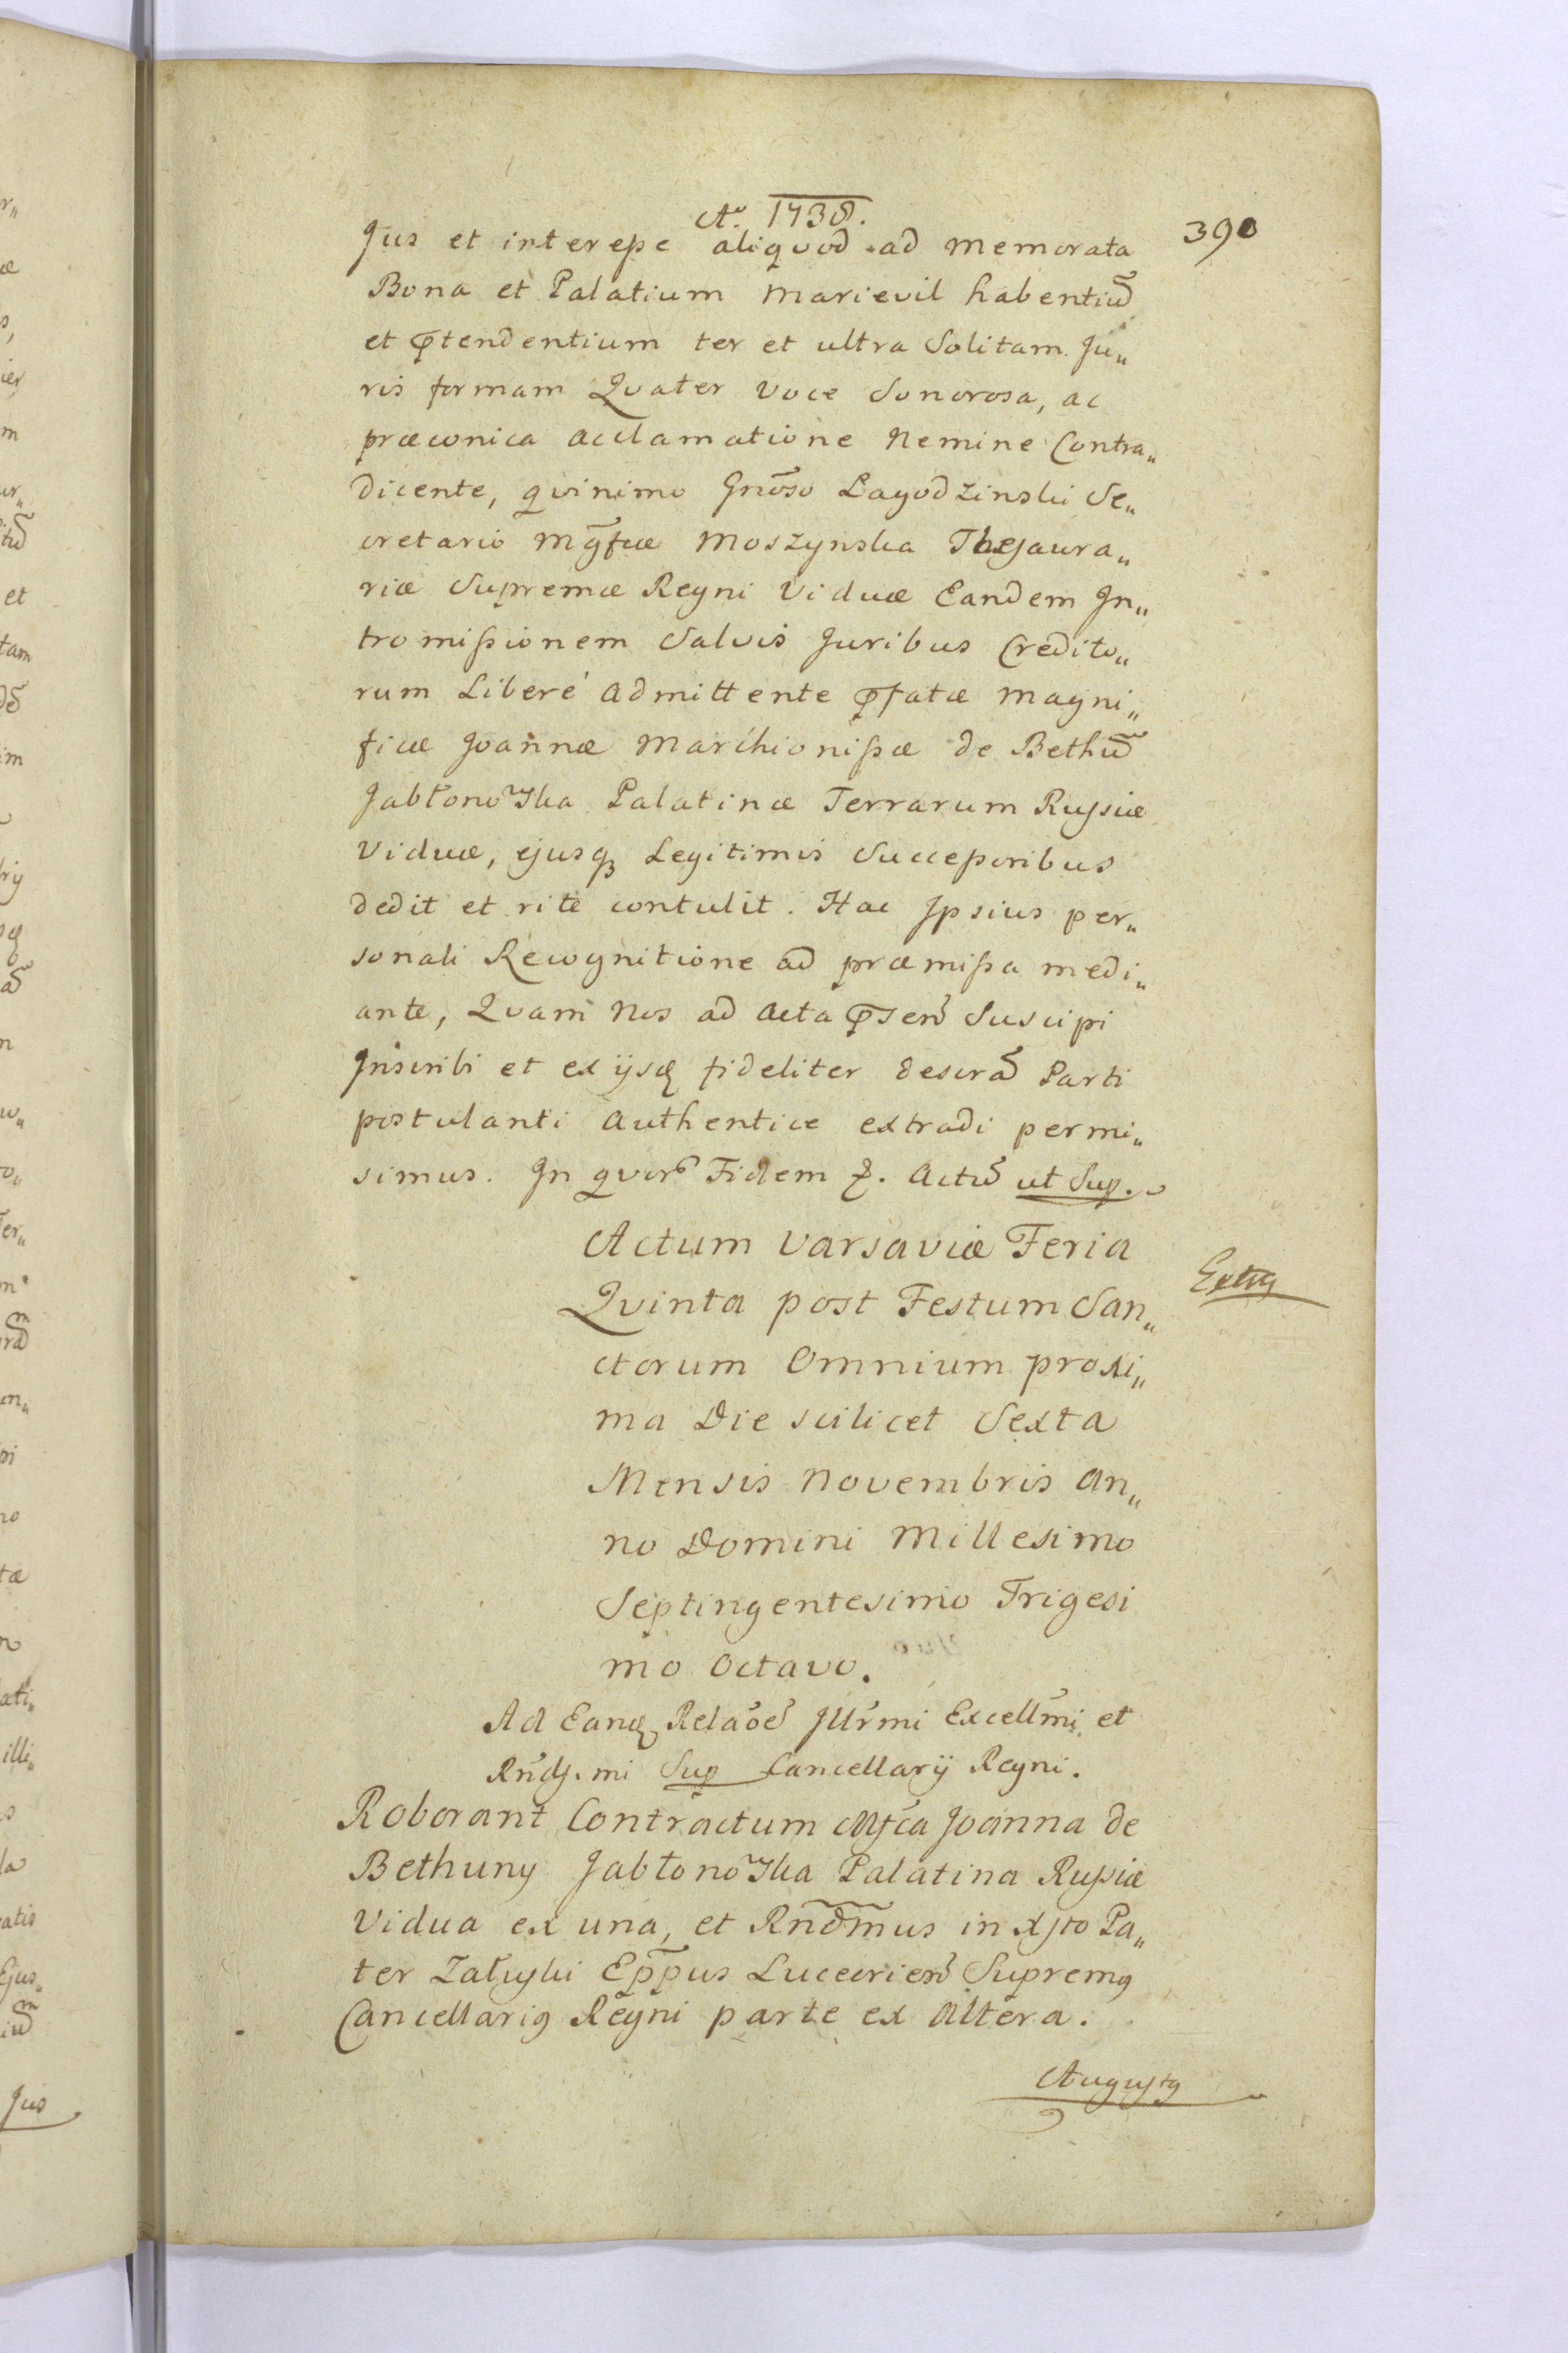 Aº. 1738.
390
Jus et interesse aliqvod ad memorata
Bona et Palatium Marievil habentiu̅
et p̄tendentium ter et ultra Solitam Ju„
ris formam Qvater voce Sonorosa, ac
præconica acclamatione Nemine Contra„
dicente, qvinimo Gnõso Lagodzinski Se„
cretario Mg̃fcæ Moszynska Thesaura„
riæ Supremæ Regni Viduæ Eandem In„
tromissionem Salvis Juribus Credito„
rum Liberé admittente p̄fatæ Magni„
ficæ Joannæ Marchionissæ de Bethu̅
Jabłonowska Palatinæ Terrarum Russiæ
Viduæ, ejusq̢ Legitimis Successoribus
dedit et rite contulit. Hac Ipsius per„
sonali Recognitione ad præmissa medi„
ante, Qvam Nos ad Acta p̄sen̄ Suscipi
Inscribi et ex ijsq̢ fideliter descra̅ Parti
postulanti Authentice extradi permi„
simus. In qvor̃ Fidem &. Actu̅ ut Sup.
Actum Varsaviæ Feria
Qvinta post Festum San„
ctorum Omnium proxi„
ma Die scilicet Sexta
Mensis Novembris An„
no Domini Millesimo
Septingentesimo Trigesi
mo octavo.
Extrꝰ
Ad Eanq̢ Relaõe̅ Jllr̃mi Excelll̃mi et
Rnds̃.mi Sup Cancellarij Regni.
Roborant Contractum Mfc̃a Joanna de
Bethuny Jabłonowska Palatina Russiæ
Vidua ex una, et Rñdm̃us in Xsto Pa„
ter Załuski Epp̃us Luceorien̄ Supremꝰ
Cancellariꝰ Regni parte ex altera.
Augustꝰ